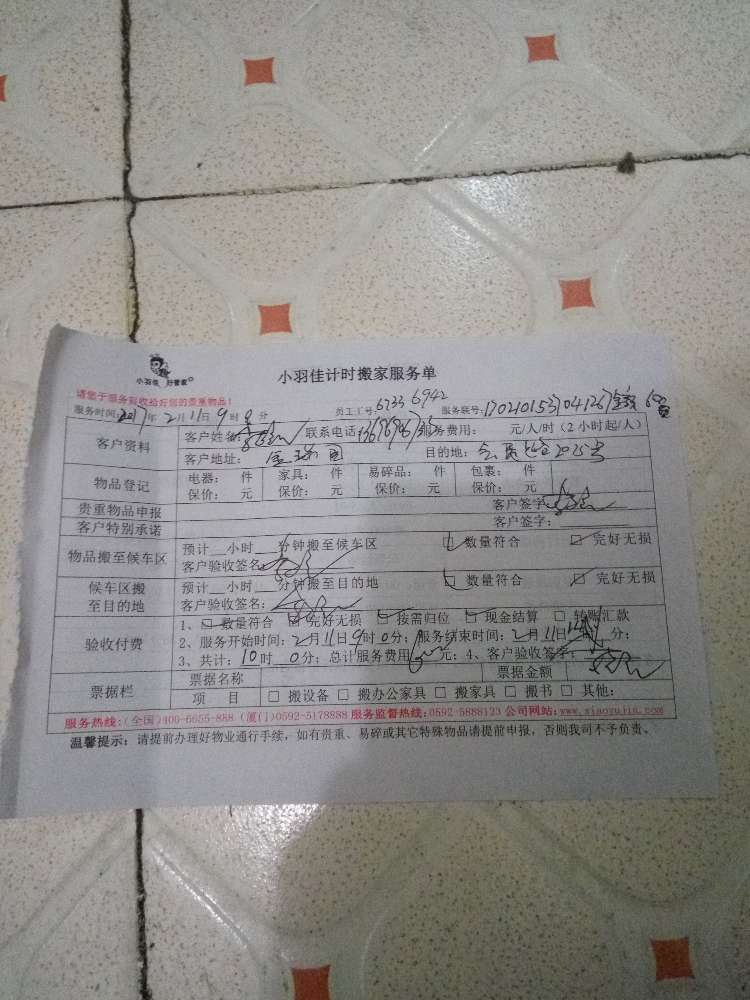 小羽佳 好管家
小羽佳计时搬家服务单
请您于服务前收拾好您的贵重物品！
服务时间：2017年2月11日9时0分 员工工号：6733 6942 服务联号：
客户资料 客户姓名： 联系电话： 服务费用： 元/人/时（2小时起/人）
客户地址： 目的地：
物品登记 电器： 件 家具： 件 易碎品： 件 包裹： 件
保价： 元 保价： 元 保价： 元 保价： 元
贵重物品申报 客户签字：
客户特别承诺 客户签字：
物品搬至候车区 预计__小时__分钟搬至候车区 □数量符合 □完好无损
客户验收签名：
候车区搬至目的地 预计__小时__分钟搬至目的地 □数量符合 □完好无损
客户验收签名：
验收付费 1、□数量符合 □完好无损 □按需归位 □现金结算 □转账汇款
2、服务开始时间：2月11日9时0分；服务结束时间：2月11日 分；
3、共计：10时0分；总计服务费用 元；4、客户验收签字：
票据栏 票据名称 票据金额
项 目 □搬设备 □搬办公家具 □搬家具 □搬书 □其他：
服务热线：(全国)400-6655-888 (厦门)0592-5178888 服务监督热线：0592-5888123 公司网站：www.xiaoyujia.com
温馨提示：请提前办理好物业通行手续，如有贵重、易碎或其它特殊物品请提前申报，否则我司不予负责。